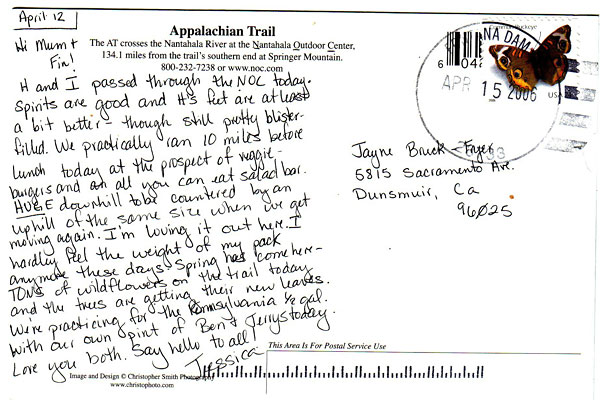 April 12
Appalachian Trail
The AT crosses the Nantahala River at the Nantahala Outdoor Center,
134.1 miles from the trail's southern end at Springer Mountain.
800-232-7238 or www.noc.com
Hi Mum +
Fin!
H and I passed through the NOC today.
Spirits are good and H's feet are at least
a bit better - though still pretty blister-
filled. We practically ran 10 miles before
lunch today at the prospect of veggie-
burgers and an all you can eat salad bar.
HUGE downhill to be countered by an
uphill of the same size when we get
moving again. I'm loving it out here. I
hardley feel the weight of my pack
anymore these days. Spring has come here -
TONS of wildflowers on the trail today
and the trees are getting their new leaves.
We're practicing for the Pennsylvania ½ gal.
with our own pint of Ben + Jerrys today.
Love you both. Say hello to all!
Jessica
NA DAM
APR 15 2006
USA
Jayne Bruck-Fryer
5815 Sacramento Ave.
Dunsmuir, Ca
96025
This Area Is For Postal Service Use
Image and Design © Christopher Smith Photography
www.christophoto.com